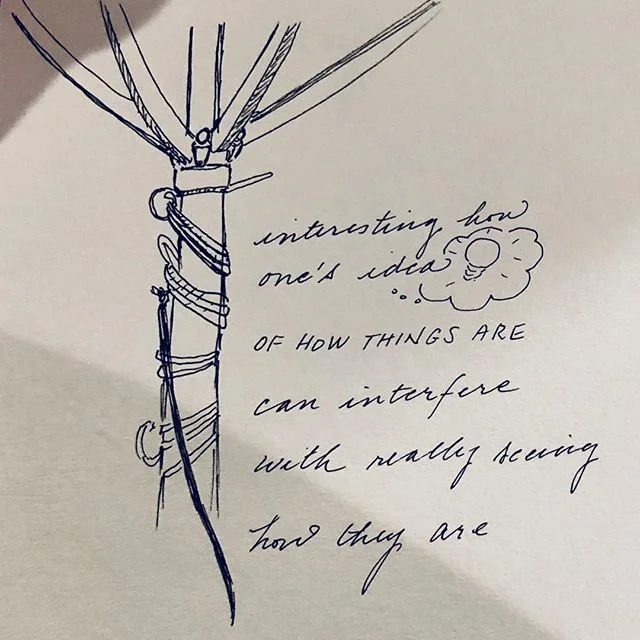 interesting how
one's idea
OF HOW THINGS ARE
can interfere
with really seeing
how they are